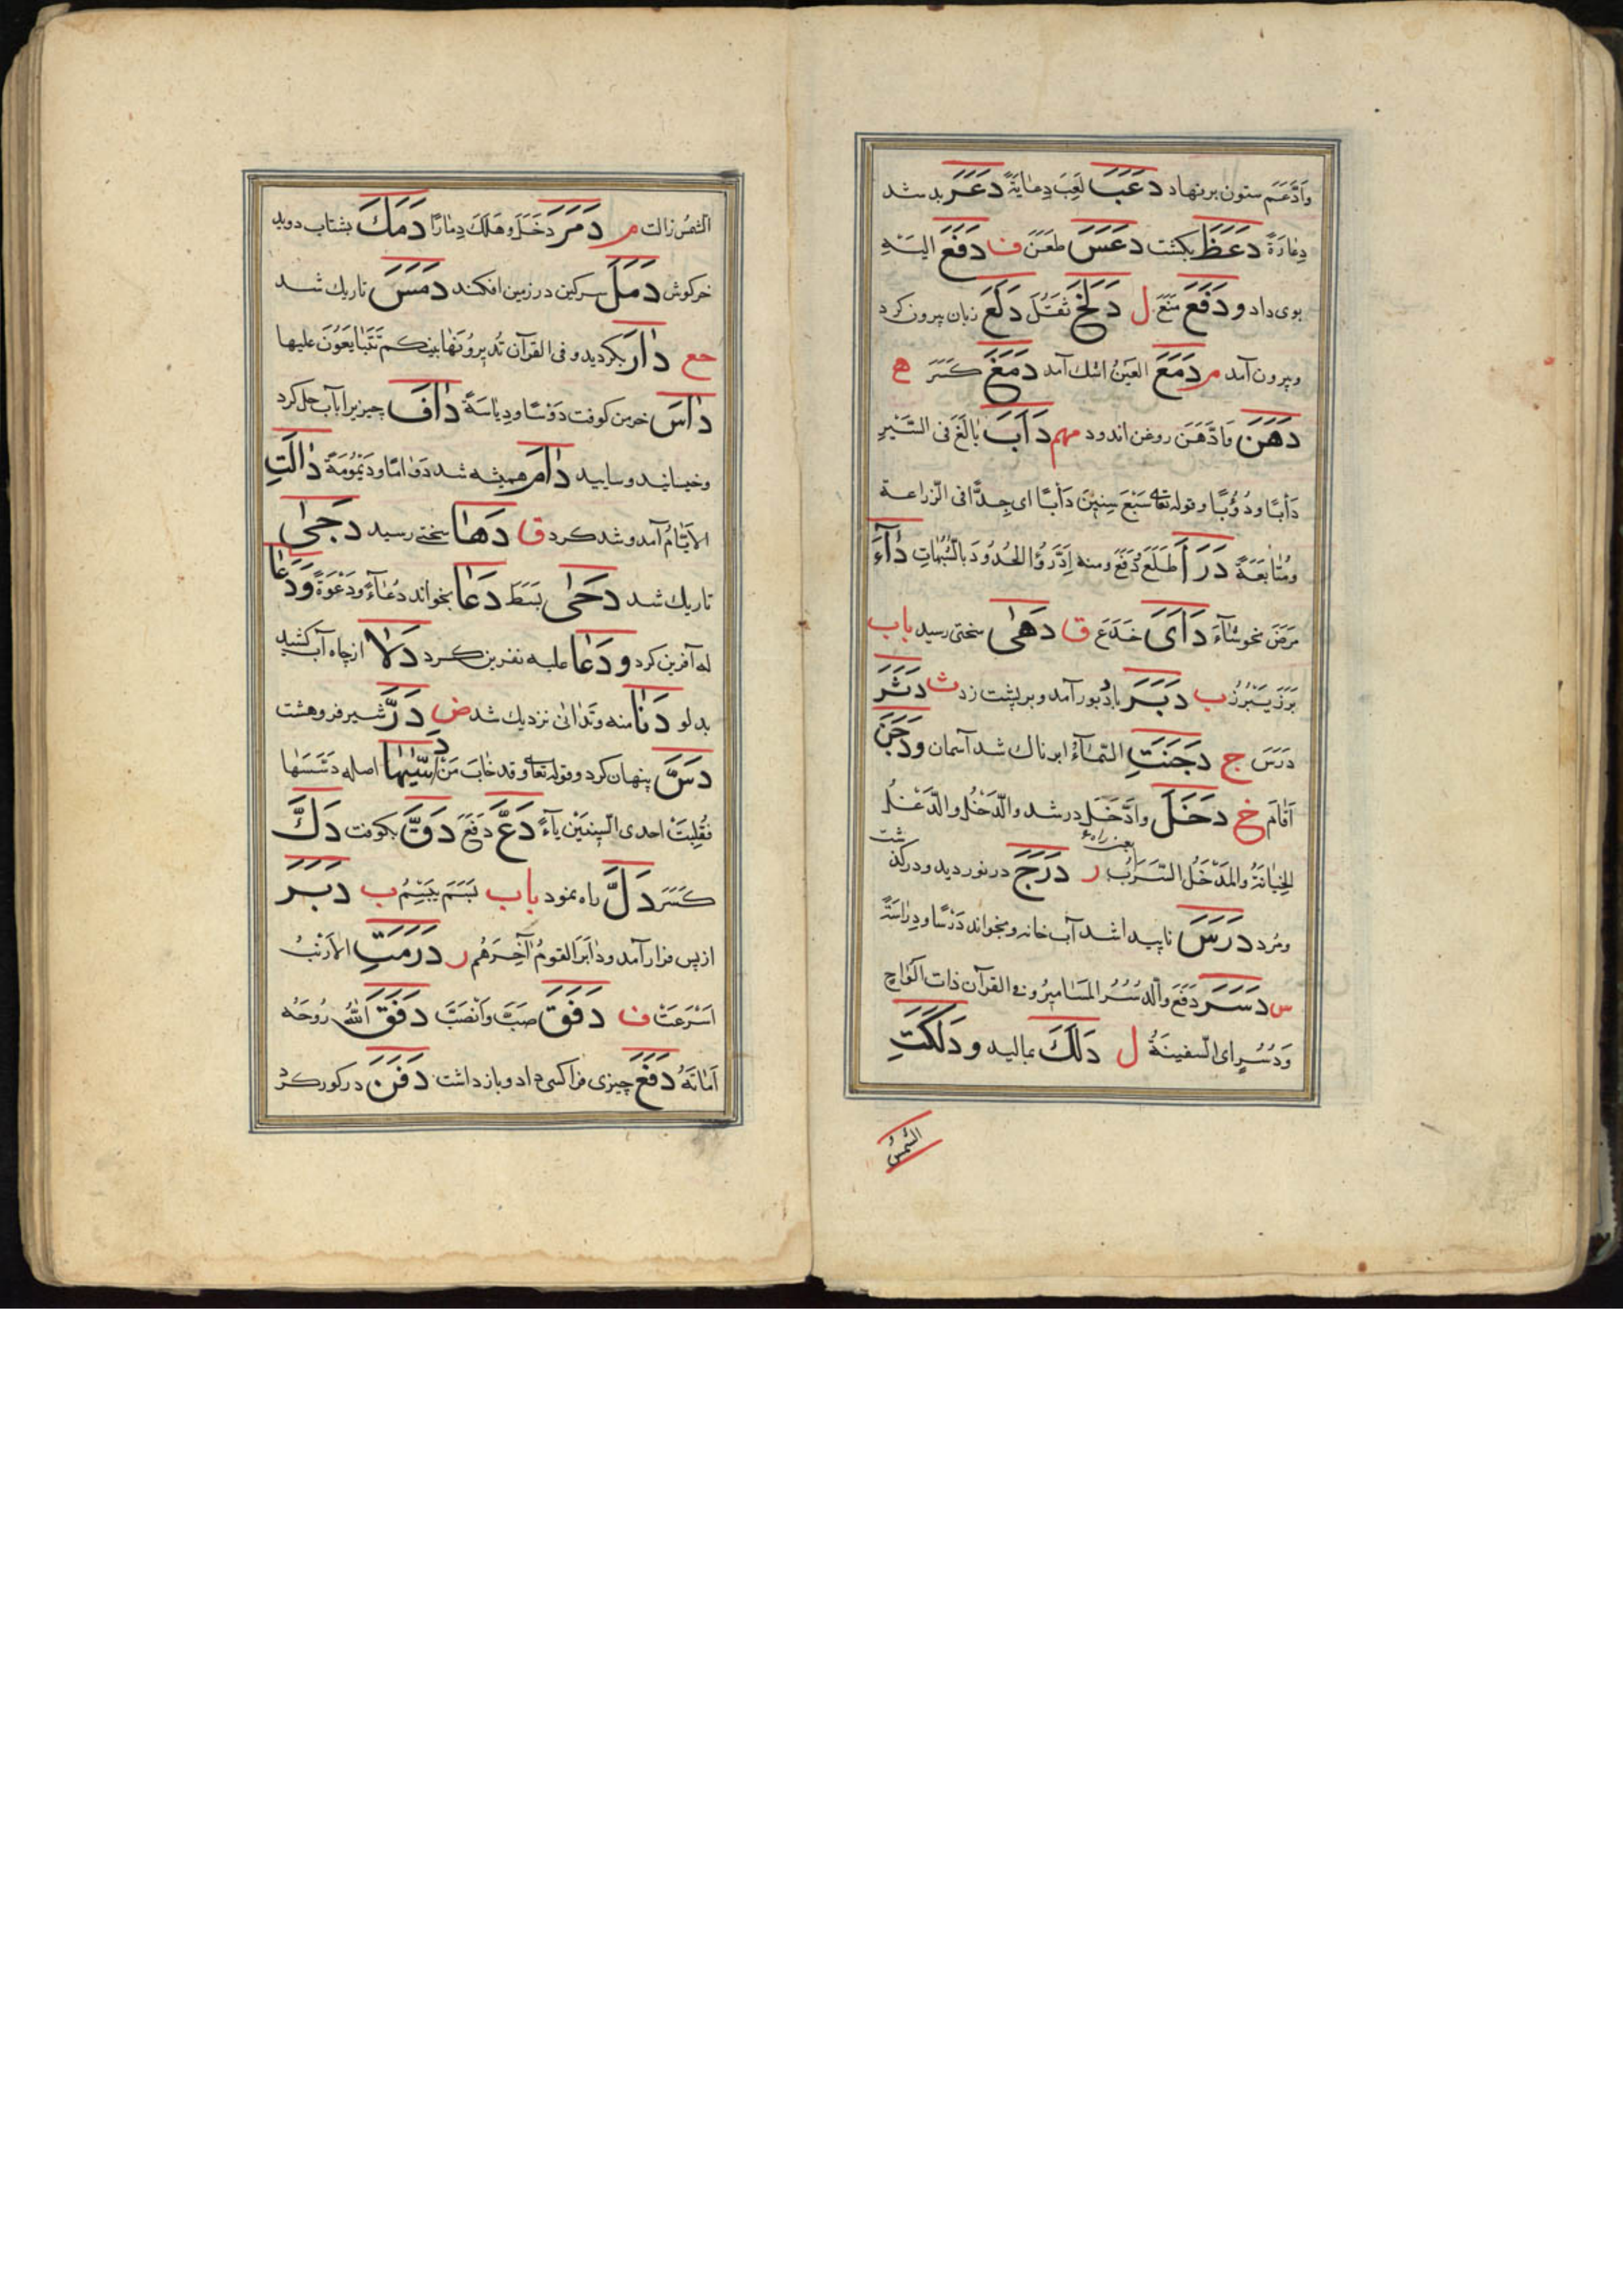 وَادَّعَمَ ستون برنهاد دَعَبَ لَعِبَ دِعٰابَةً دَعَرَ بد شد
دِعٰارَةً دَعَظَ بکشت دَعَسَ طَعَنَ ف دَفَعَ الیَـْهِ
بوی داد و دَفَعَ مَنَعَ ل دَلَخَ ثَقُـلَ دَلَعَ زبان بیرون کرد
وبیرون آمد م دَمَعَ العَیَنُ اشك آمد دَمَغَ کَسَرَ ه
دَهَنَ وَادَّهَنَ روغن اندود مهم دَاَبَ بٰالَغَ فی السَّیْرِ
دَأبًا ودُؤبًا وقوله تعٰا سَبْعَ سِنِینَ دَأبـًا ای جِدًّا فی الزّراعة
ومُتٰابَعَةً دَرَأَ طَلَعَ ودَفَعَ ومنه اِدَّرَؤُا الحُدُودَ بالشّبُهٰاتِ دٰآءَ
مَرَضَ نحو شٰآءَ دَاَیَ خَدَعَ ق دَهٰی سختی رسید باب
بَرَزَ یَبْرُزُ ب دَبَرَ بادِ دَبور آمد وبر پشت زد ث دَثَرَ
دَرَسَ ج دَجَنَتِ السَّمٰآءُ ابرناك شد آسمان ودَجَنَ
اَقٰامَ خ دَخَلَ وادَّخَلَ درشد والدَّخْلُ والدَّغْلُ
الخِیٰانَةُ والمَدْخَلُ السَّرَبُ یعنی راه ر دَرَجَ درنوردید ودرگذشت
ومُرد دَرَسَ ناپیدا شد آب خانه وبخواند دَرْسًا ودِرٰاسَةً
س دَسَرَ دَفَعَ والدُسُرُ المَسٰامیرُ وفی القرآن ذات اَلْوٰاحٍ
وَدُسُرٍ ای السّفینَةُ ل دَلَكَ بمالید ودَلَکَتِ
الشمسُ
الشمسُ زالت م دَمَرَ دَخَلَ وهَلَكَ دِمٰارًا دَمَكَ بشتاب دوید
خرکوش دَمَلَ سرکین در زمین افکند دَمَسَ تاریك شـد
مع دٰارَ بکردید و فی القرآن تُدیرُونَهٰا بینکم تَتَبٰایَعُونَ علیها
دٰاسَ خرمن کوفت دَوْسًا ودِیٰاسَةً دٰافَ چیزیرا بآب حل کرد
وخیسانید وسایید دٰامَ همیشه شد دَوٰامًا ودَیْمُومَةً دٰالَتِ
الاَیّامُ آمد وشد کرد ق دَهٰا سختی رسید دَجیٰ
تاریك شد دَحیٰ بَسَطَ دَعٰا بخواند دُعٰآءً ودَعْوَةً ودَعٰا
له آفرین کرد ودَعٰا علیه نفرین کـرد دَلاٰ از چاه آب کشید
بدلو دَنٰا منه وتَدٰانیٰ نزدیك شد ض دَرَّ شیر فروهشت
دَسَّ پنهان کرد وقوله تعٰا وقد خٰابَ مَنْ دَسّٰیهٰا اصله دَسَّسَهٰا
فَقُلِبَتْ احدی السِینَیْن یٰآءً دَعَّ دَفَعَ دَقَّ بکوفت دَكَّ
کَسَرَ دَلَّ راه نمود باب بَسَمَ یَبْسِمُ ب دَبَرَ
از پس فراز آمد ودٰابَرَ القومُ آخِـَرهُم ر دَرَمَتِ الاَرْنَبُ
اَسْرَعَتْ ف دَفَقَ صَبَّ وَانْصَبَّ دَفَقَ اللّٰهُ رُوحَهُ
اَمٰاتَهُ دَفَعَ چیزی فرا کسی داد وباز داشت دَفَنَ در کور کرد